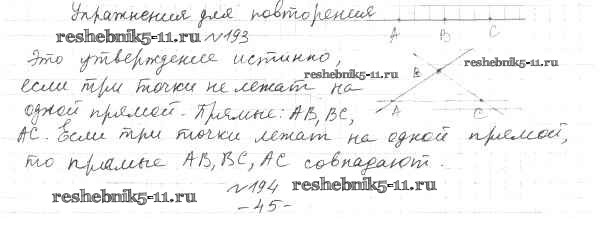 Упражнения для повторения
reshebnik5-11.ru №193
А В С
Это утверждение истинно,
reshebnik5-11.ru
В
reshebnik5-11.ru
если три точки не лежат на
одной прямой. Прямые: АВ, ВС,
А С
АС. Если три точки лежат на одной прямой,
то прямые АВ, ВС, АС совпадают.
№194
reshebnik5-11.ru
reshebnik5-11.ru
-45-